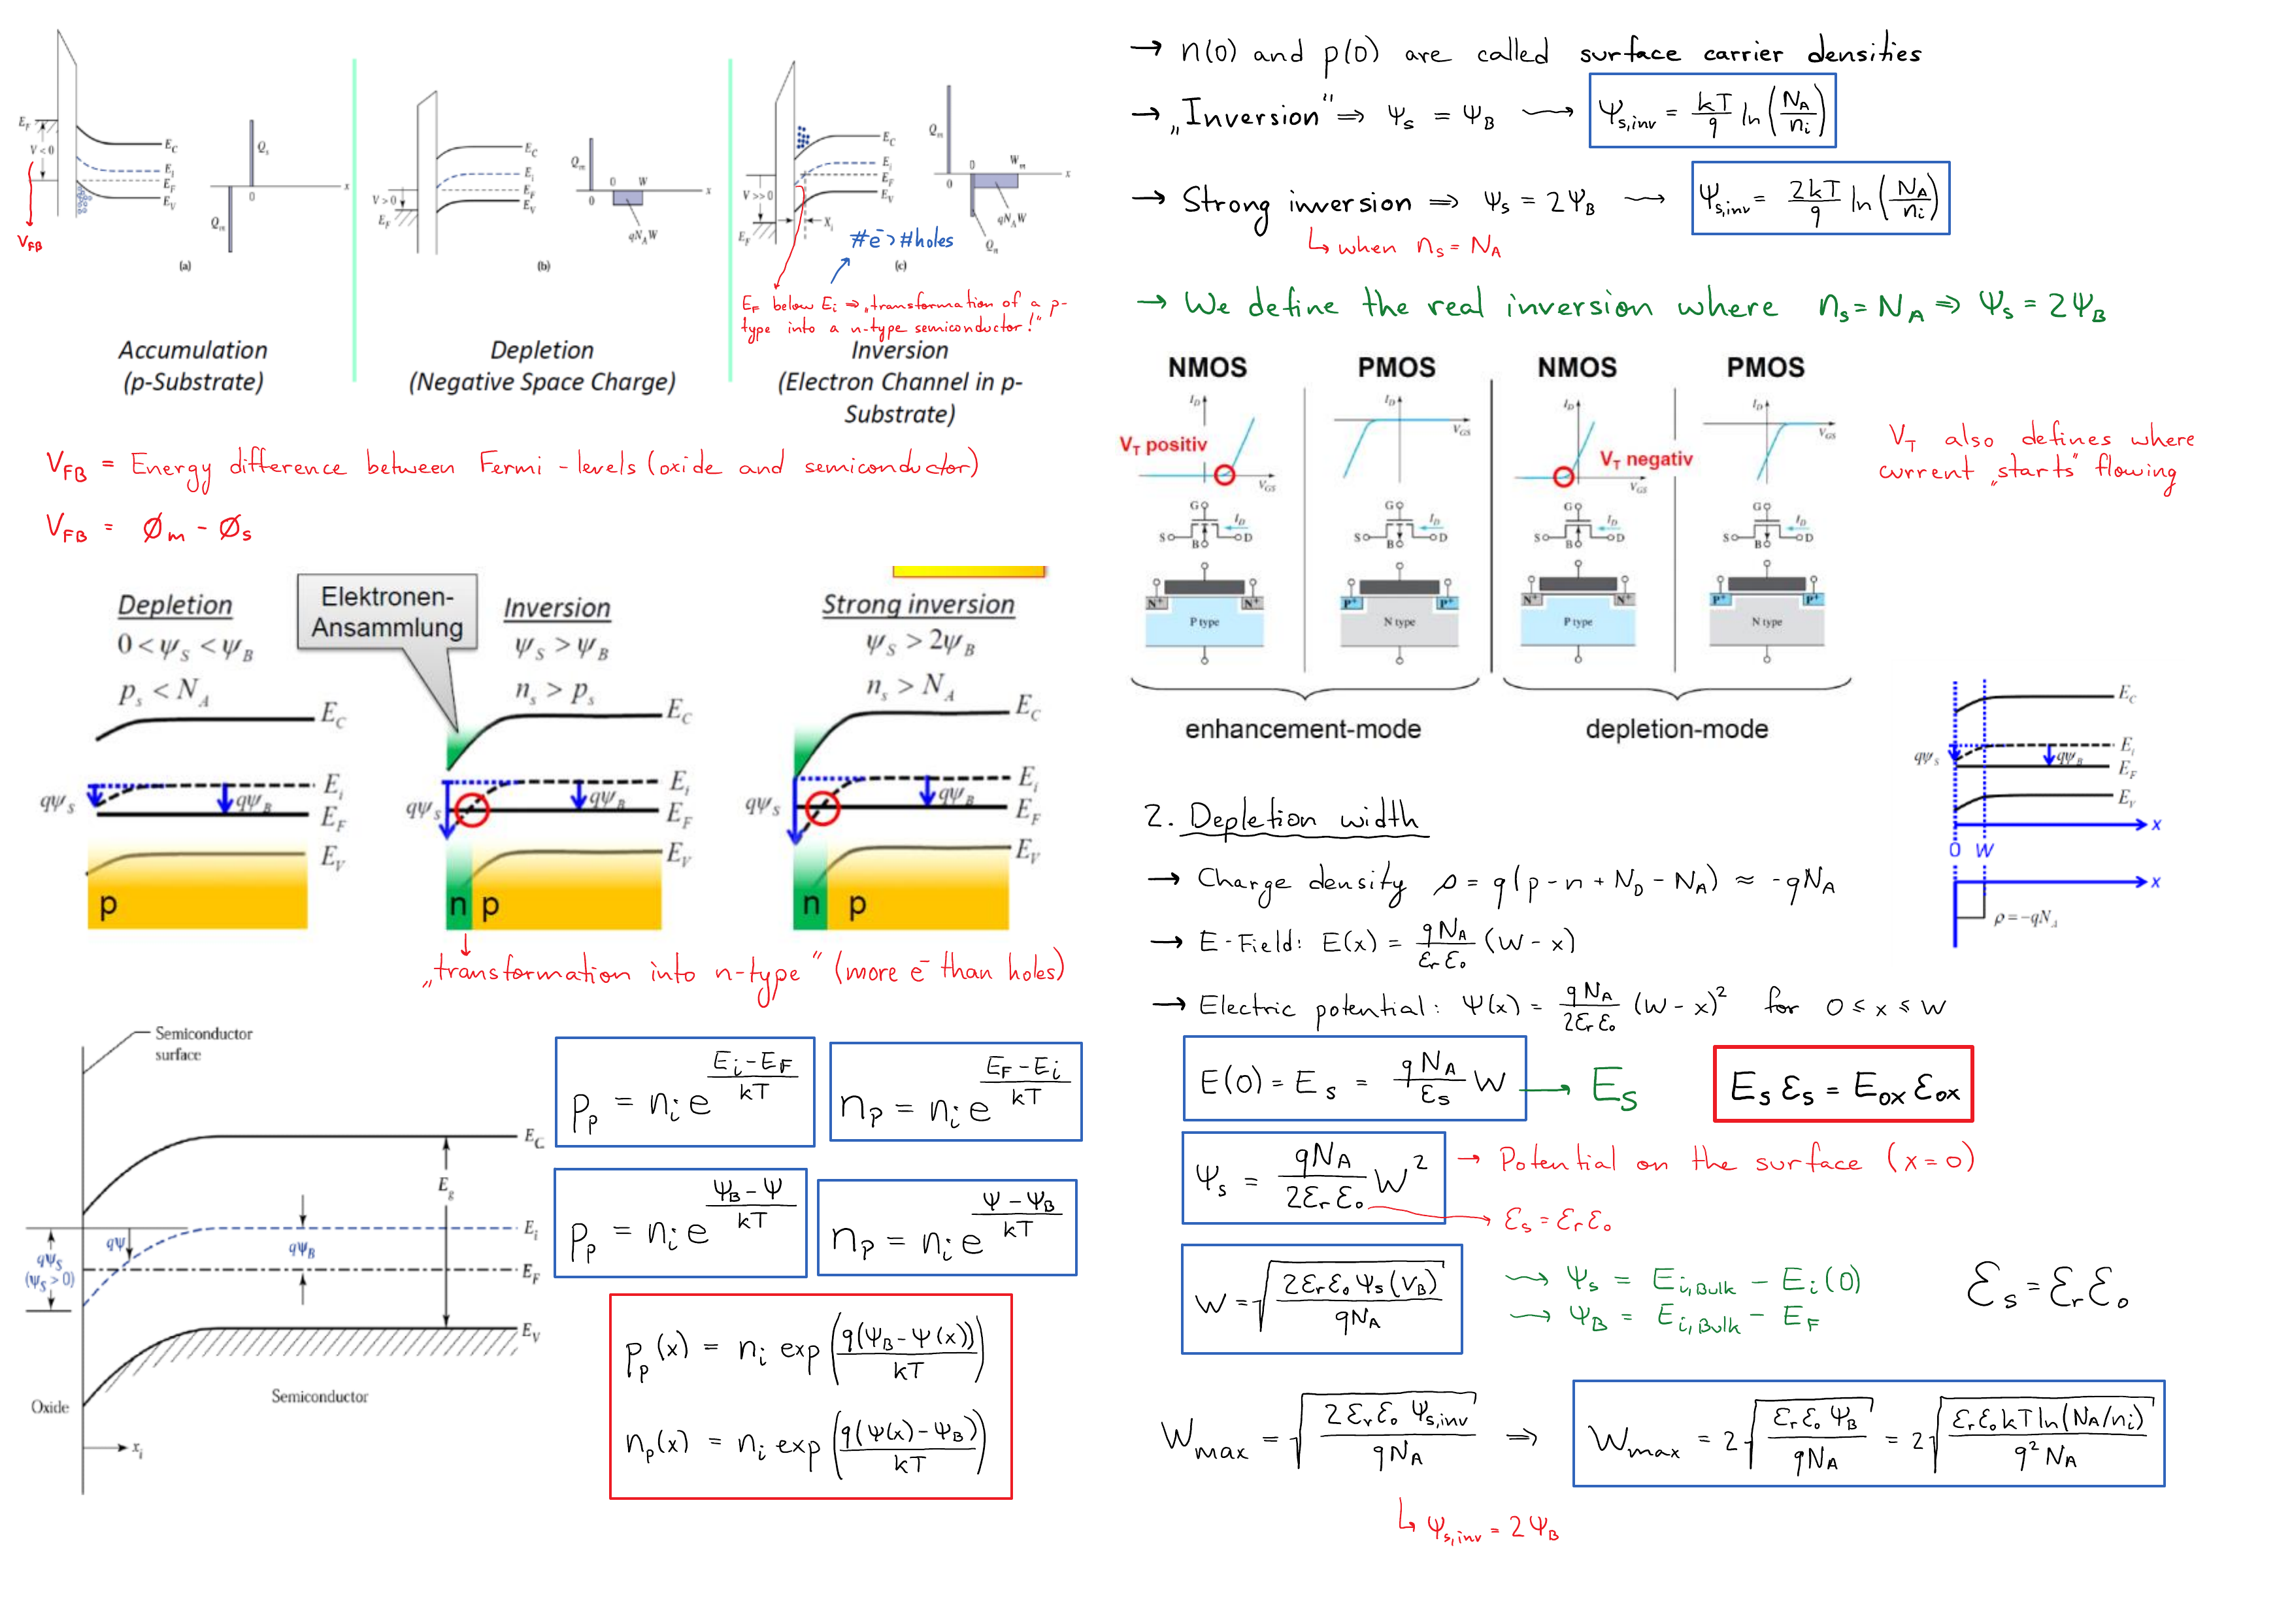 E_F
V<0
V_FB
E_C
E_i
E_F
E_V
Q_s
0
x
Q_m
(a)
V>0
E_F
E_C
E_i
E_F
E_V
Q_m
0 W
0
x
qN_AW
(b)
V>>0
E_F
E_C
E_i
E_F
E_V
x_i
Q_m
0 W_m
0
x
qN_AW
Q_n
(c)
#e⁻>#holes
E_F below E_i ⇒ „transformation of a p-
type into a n-type semiconductor!"
Accumulation
(p-Substrate)
Depletion
(Negative Space Charge)
Inversion
(Electron Channel in p-
Substrate)
V_FB = Energy difference between Fermi-levels (oxide and semiconductor)
V_FB = Ø_m - Ø_s
Depletion
0<ψ_S<ψ_B
p_s < N_A
Elektronen-
Ansammlung
Inversion
ψ_S>ψ_B
n_s > p_s
Strong inversion
ψ_S>2ψ_B
n_s > N_A
E_C
E_i
qψ_S
qψ_B
E_F
E_V
p
E_C
E_i
qψ_S
qψ_B
E_F
E_V
n p
E_C
E_i
qψ_S
qψ_B
E_F
E_V
n p
„transformation into n-type" (more e⁻ than holes)
Semiconductor
surface
E_C
E_g
E_i
qψ
qψ_B
qψ_S
(ψ_S>0)
E_F
E_V
Oxide
Semiconductor
x_i
p_p = n_i e^((E_i-E_F)/kT)
n_p = n_i e^((E_F-E_i)/kT)
p_p = n_i e^((Ψ_B-Ψ)/kT)
n_p = n_i e^((Ψ-Ψ_B)/kT)
p_p(x) = n_i exp(q(Ψ_B-Ψ(x))/kT)
n_p(x) = n_i exp(q(Ψ(x)-Ψ_B)/kT)
→ n(0) and p(0) are called surface carrier densities
→ „Inversion" ⇒ Ψ_s = Ψ_B ⟿ Ψ_s,inv = kT/q ln(N_A/n_i)
→ Strong inversion ⇒ Ψ_s = 2Ψ_B ⟿ Ψ_s,inv = 2kT/q ln(N_A/n_i)
↳ when n_s = N_A
→ We define the real inversion where n_s = N_A ⇒ Ψ_s = 2Ψ_B
NMOS PMOS NMOS PMOS
I_D I_D I_D I_D
V_T positiv
V_T negativ
V_GS V_GS V_GS V_GS
G G G G
I_D I_D I_D I_D
S D S D S D S D
B B B B
N⁺ N⁺ P⁺ P⁺ N⁺ N⁺ P⁺ P⁺
P type N type P type N type
enhancement-mode depletion-mode
V_T also defines where
current „starts" flowing
E_C
E_i
qψ_S
qψ_B
E_F
E_V
x
0 W
x
ρ=-qN_A
2. Depletion width
→ Charge density ρ = q(p-n+N_D-N_A) ≈ -qN_A
→ E-Field: E(x) = qN_A/(ε_r ε_0) (W-x)
→ Electric potential: Ψ(x) = qN_A/(2ε_r ε_0) (W-x)² for 0 ≤ x ≤ W
E(0) = E_s = qN_A/ε_s W → E_s
E_s ε_s = E_ox ε_ox
Ψ_s = qN_A/(2ε_r ε_0) W² → Potential on the surface (x=0)
→ ε_s = ε_r ε_0
W = √(2ε_r ε_0 Ψ_s(V_B)/(qN_A))
⟿ Ψ_s = E_i,Bulk - E_i(0)
⟿ Ψ_B = E_i,Bulk - E_F
ε_s = ε_r ε_0
W_max = √(2ε_r ε_0 Ψ_s,inv/(qN_A)) ⇒ W_max = 2√(ε_r ε_0 Ψ_B/(qN_A)) = 2√(ε_r ε_0 kT ln(N_A/n_i)/(q² N_A))
↳ Ψ_s,inv = 2Ψ_B